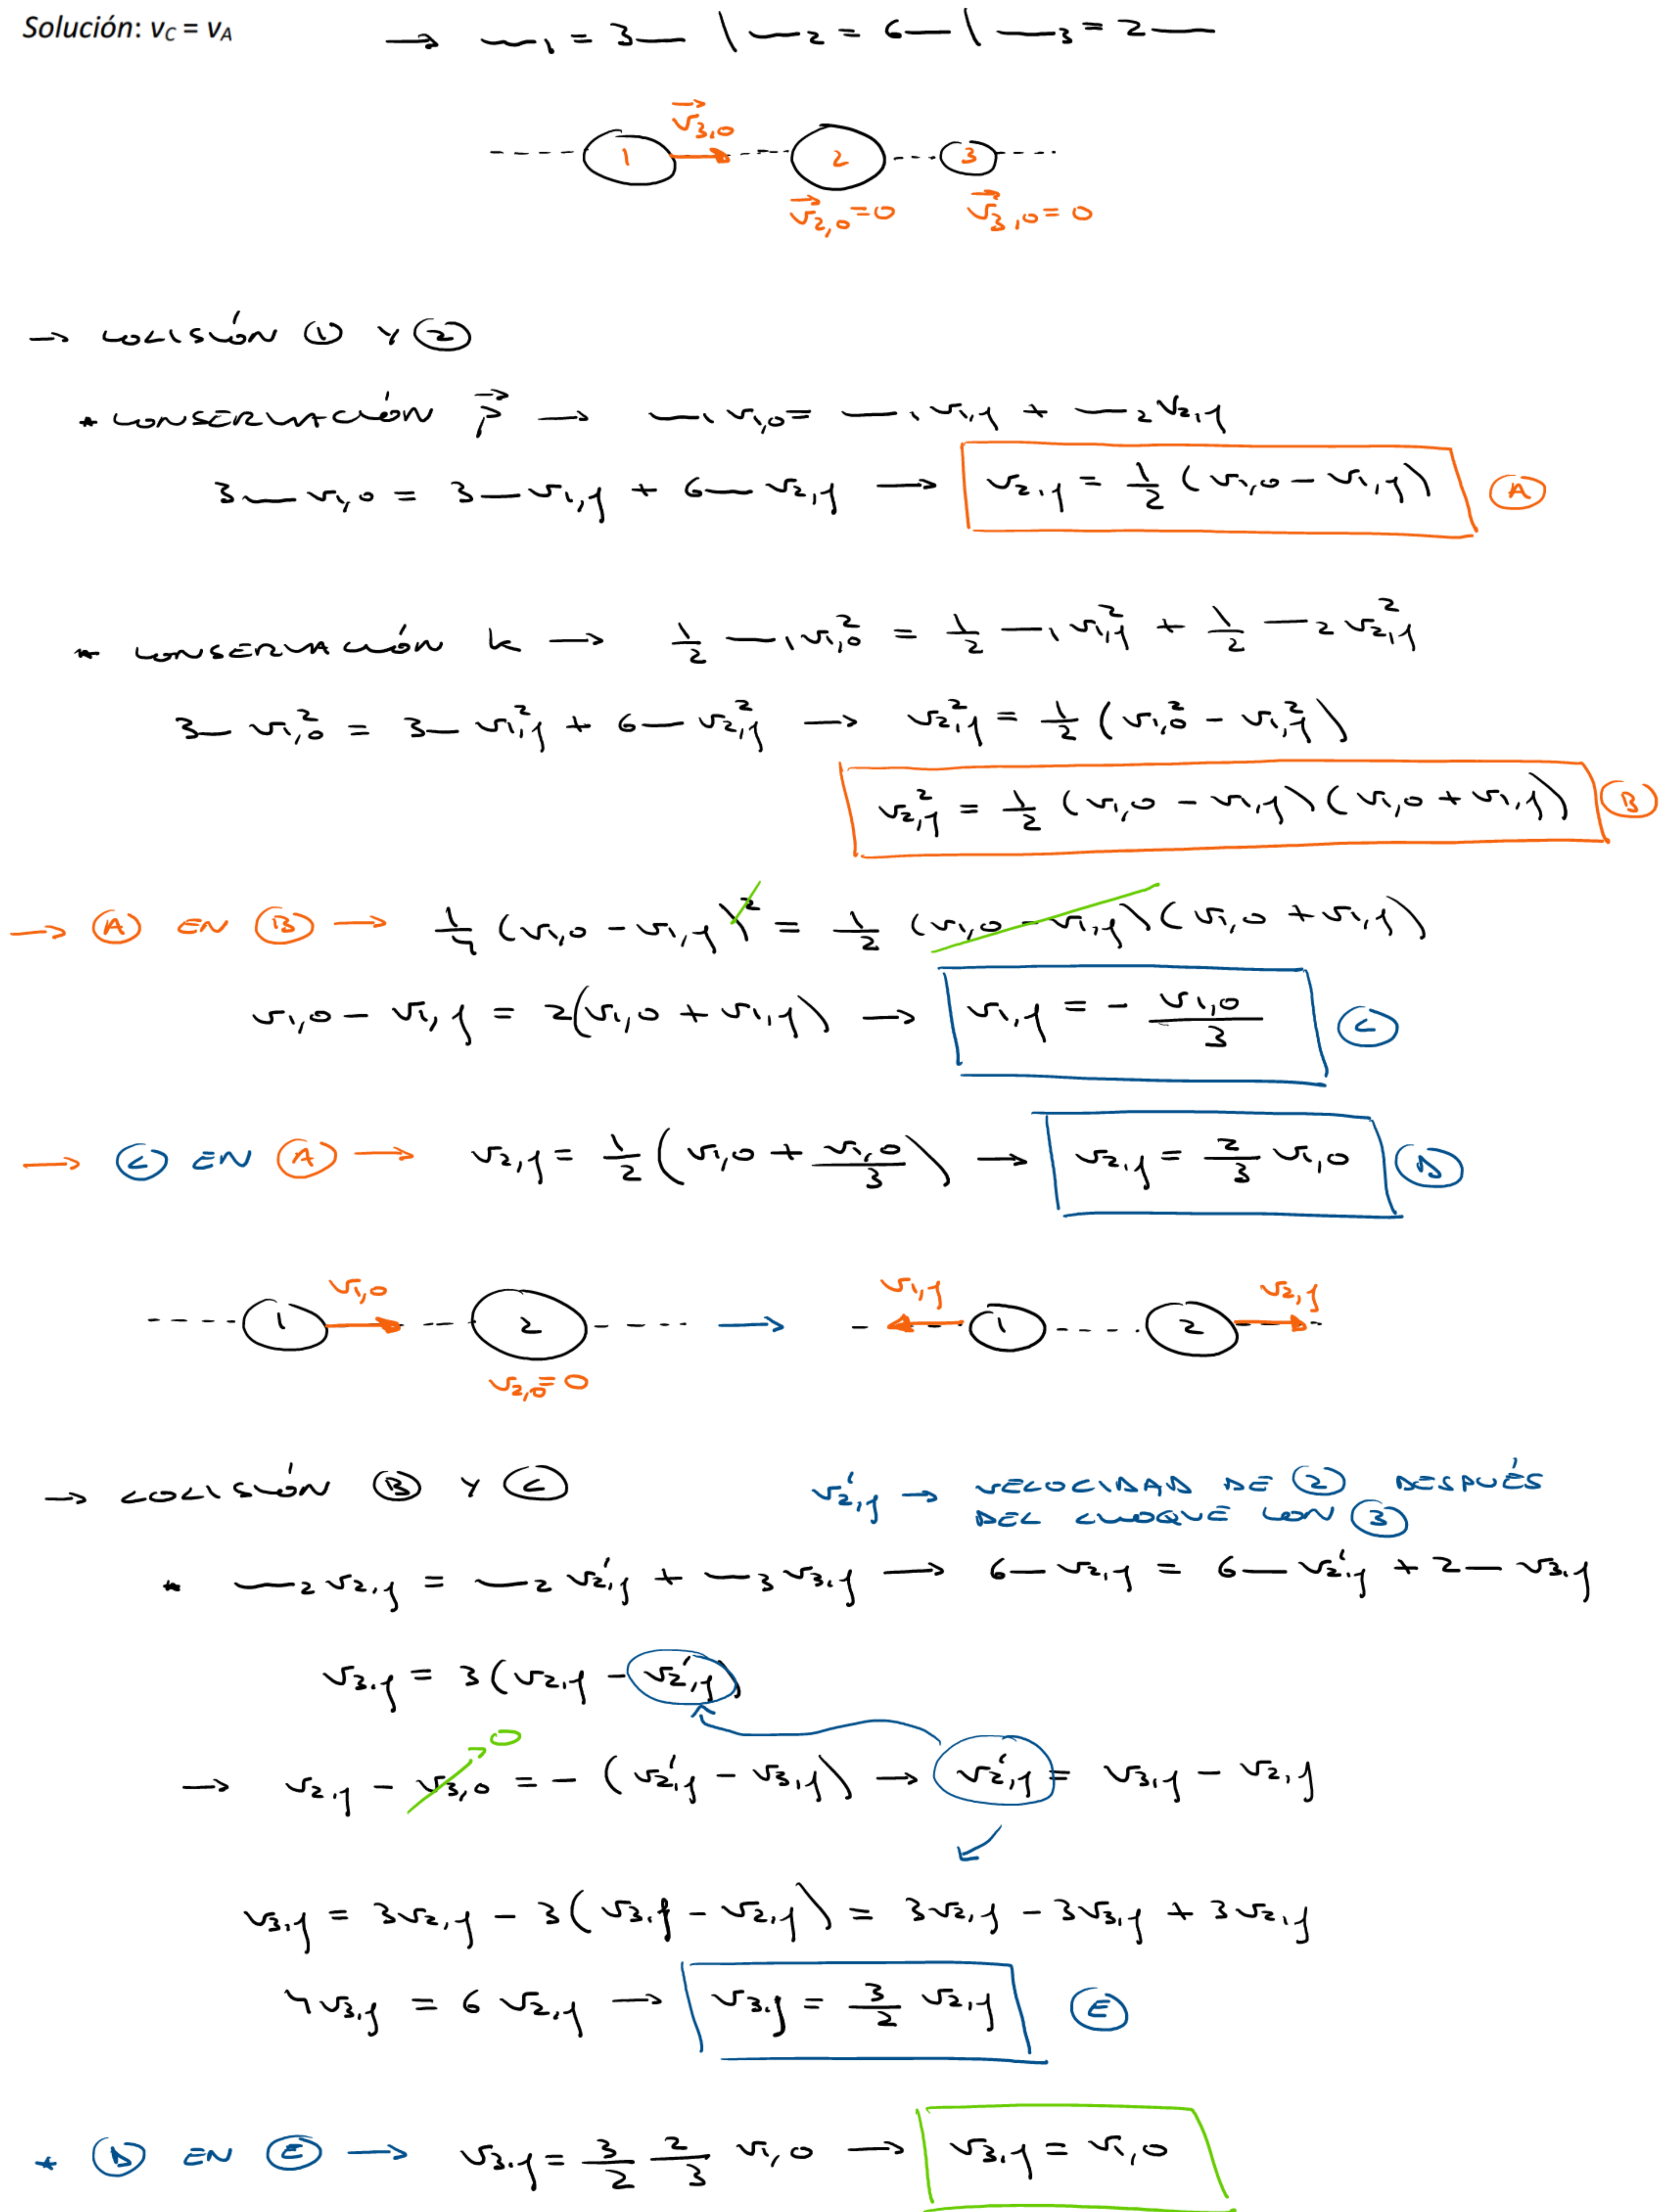 Solución: v_C = v_A → m₁ = 3m | m₂ = 6m | m₃ = 2m
v⃗₃,₀
1 2 3
v⃗₂,₀ = 0 v⃗₃,₀ = 0
→ COLISIÓN ① Y ②
* CONSERVACIÓN p⃗ → m₁v₁,₀ = m₁v₁,f + m₂v₂,f
3m v₁,₀ = 3m v₁,f + 6m v₂,f → v₂,f = 1/2 (v₁,₀ − v₁,f) Ⓐ
* CONSERVACIÓN K → 1/2 m₁v₁,₀² = 1/2 m₁v₁,f² + 1/2 m₂v₂,f²
3m v₁,₀² = 3m v₁,f² + 6m v₂,f² → v₂,f² = 1/2 (v₁,₀² − v₁,f²)
v₂,f² = 1/2 (v₁,₀ − v₁,f)(v₁,₀ + v₁,f) Ⓑ
→ Ⓐ EN Ⓑ → 1/4 (v₁,₀ − v₁,f)² = 1/2 (v₁,₀ − v₁,f)(v₁,₀ + v₁,f)
v₁,₀ − v₁,f = 2(v₁,₀ + v₁,f) → v₁,f = − v₁,₀/3 Ⓒ
→ Ⓒ EN Ⓐ → v₂,f = 1/2 (v₁,₀ + v₁,₀/3) → v₂,f = 2/3 v₁,₀ Ⓓ
v₁,₀ v₁,f v₂,f
1 2 → 1 2
v₂,₀ = 0
→ COLISIÓN Ⓑ Y Ⓒ v₂',f → VELOCIDAD DE ② DESPUÉS
DEL CHOQUE CON ③
* m₂v₂,f = m₂v₂',f + m₃v₃,f → 6m v₂,f = 6m v₂',f + 2m v₃,f
v₃,f = 3(v₂,f − v₂',f)
0
→ v₂,f − v₃,₀ = − (v₂',f − v₃,f) → v₂',f = v₃,f − v₂,f
v₃,f = 3v₂,f − 3(v₃,f − v₂,f) = 3v₂,f − 3v₃,f + 3v₂,f
4v₃,f = 6 v₂,f → v₃,f = 3/2 v₂,f Ⓔ
* Ⓓ EN Ⓔ → v₃,f = 3/2 2/3 v₁,₀ → v₃,f = v₁,₀